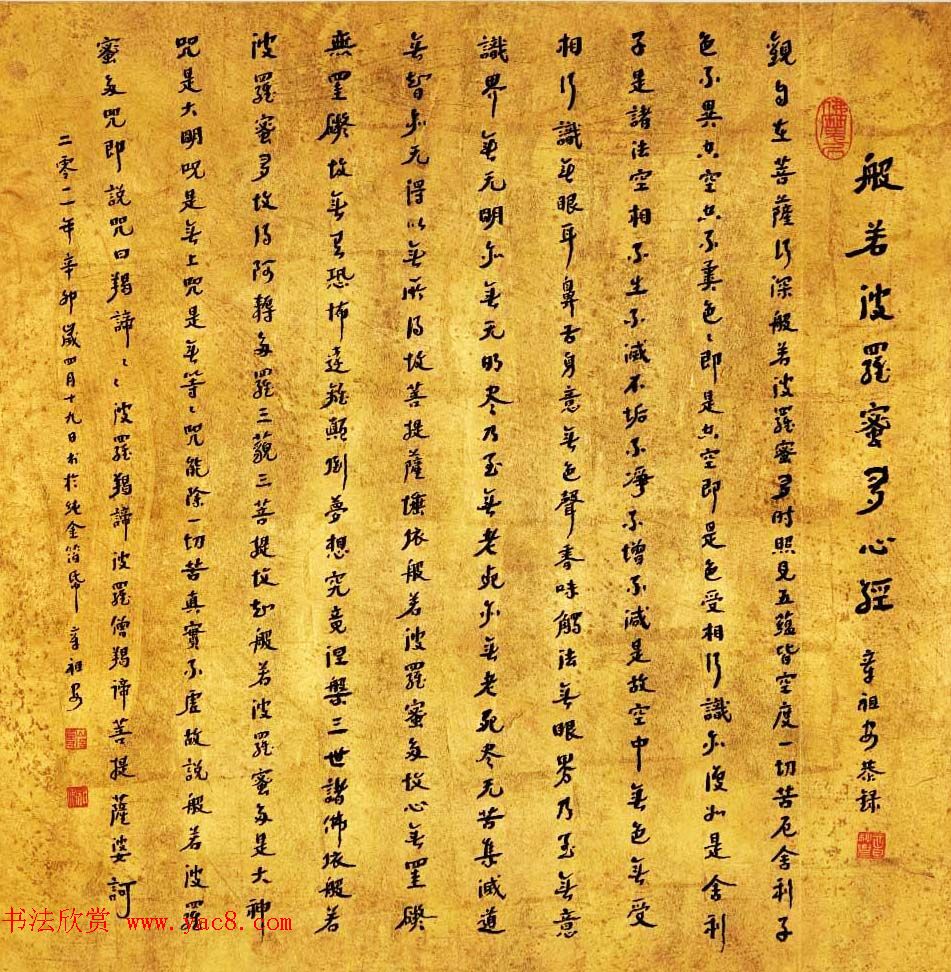 般若波羅蜜多心經 章祖安恭録
觀自在菩薩行深般若波羅蜜多时照見五蕴皆空度一切苦厄舍利子
色不異空空不異色色〻即是空空即是色受相行識亦復如是舍利
子是諸法空相不生不滅不垢不凈不增不減是故空中無色無受
相行識無眼耳鼻舌身意無色聲香味觸法無眼界乃至無意
識界無无明亦無无明尽乃至無老死亦無老死尽无苦集滅道
無智亦无得以無所得故菩提薩埵依般若波羅蜜多故心無罣礙
無罣礙故無有恐怖遠離顛倒夢想究竟涅槃三世諸佛依般若
波羅蜜多故得阿耨多羅三藐三菩提故知般若波羅蜜多是大神
咒是大明咒是無上咒是無等〻咒能除一切苦真實不虛故説般若波羅
蜜多咒即説咒曰羯諦〻〻波羅羯諦波羅僧羯諦菩提薩婆訶
二零一一年辛卯歲四月十九日書於純金箔紙 章祖安
书法欣赏 www.yac8.com